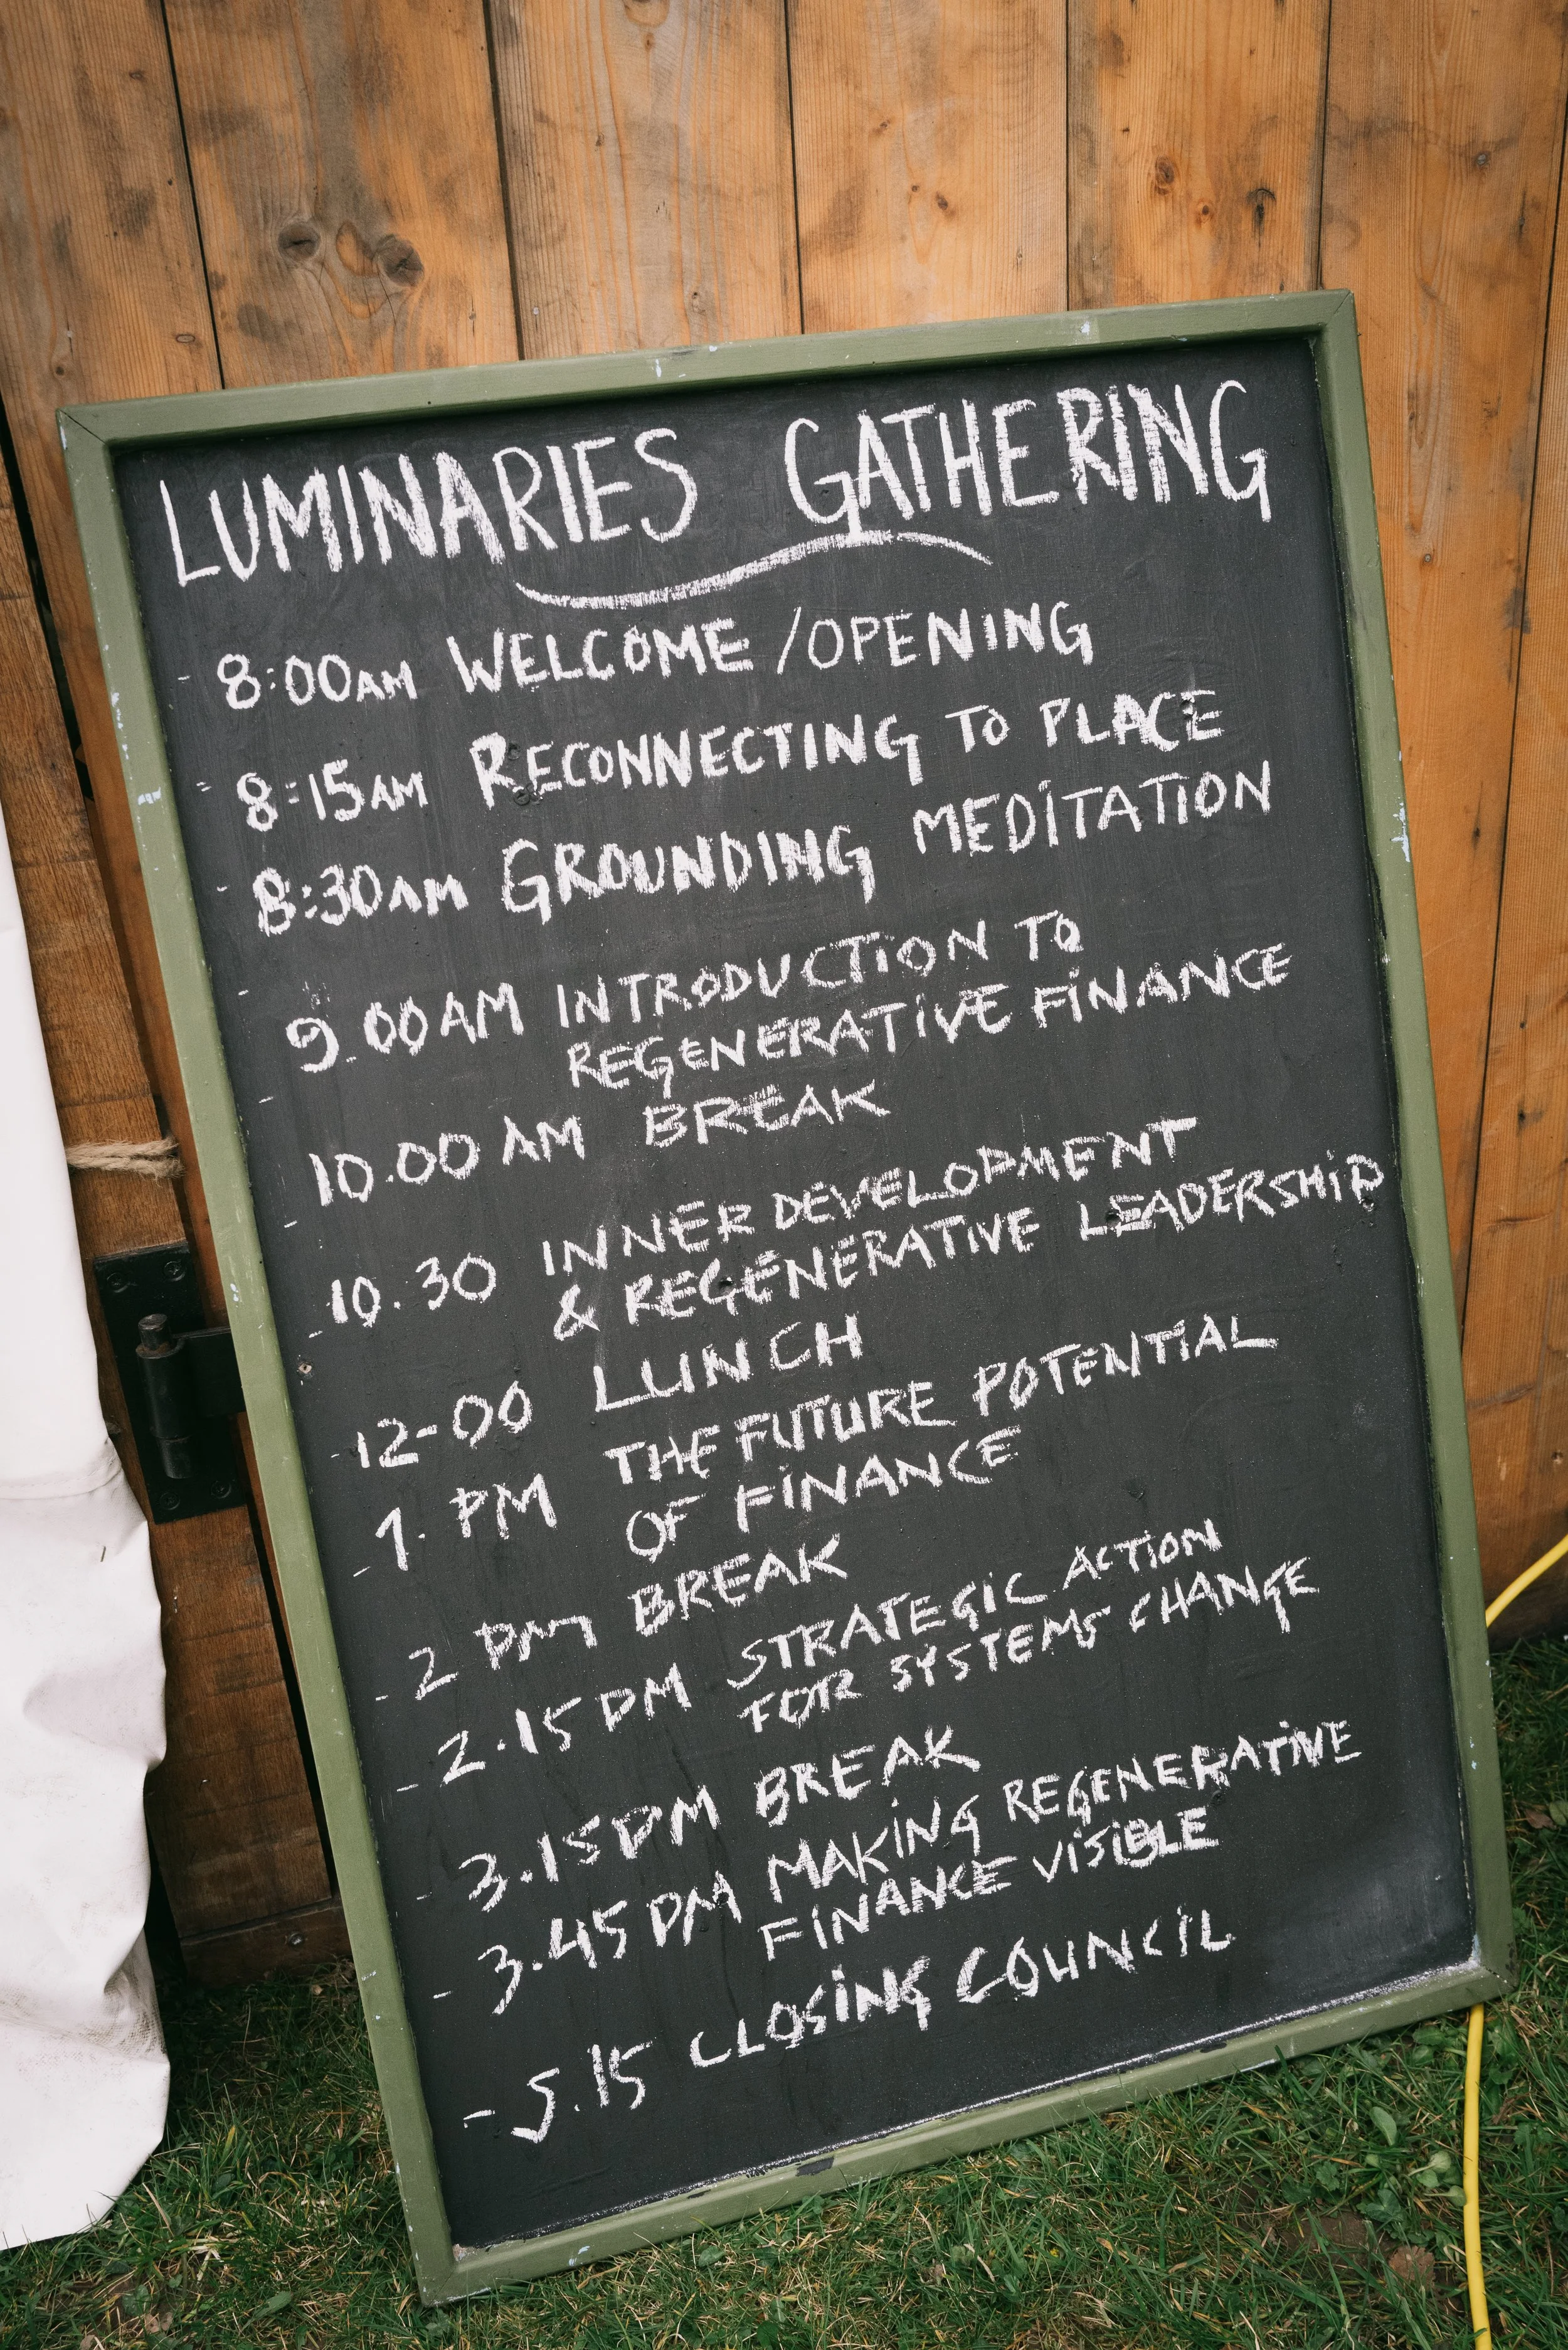 LUMINARIES GATHERING
- 8:00AM WELCOME / OPENING
- 8:15AM RECONNECTING TO PLACE
- 8:30AM GROUNDING MEDITATION
- 9.00AM INTRODUCTION TO
REGENERATIVE FINANCE
- 10.00 AM BREAK
- 10.30 INNER DEVELOPMENT
& REGENERATIVE LEADERSHIP
- 12-00 LUNCH
- 1. PM THE FUTURE POTENTIAL
OF FINANCE
- 2 PM BREAK
- 2.15PM STRATEGIC ACTION
FOR SYSTEMS CHANGE
- 3.15PM BREAK
- 3.45PM MAKING REGENERATIVE
FINANCE VISIBLE
- 5.15 CLOSING COUNCIL